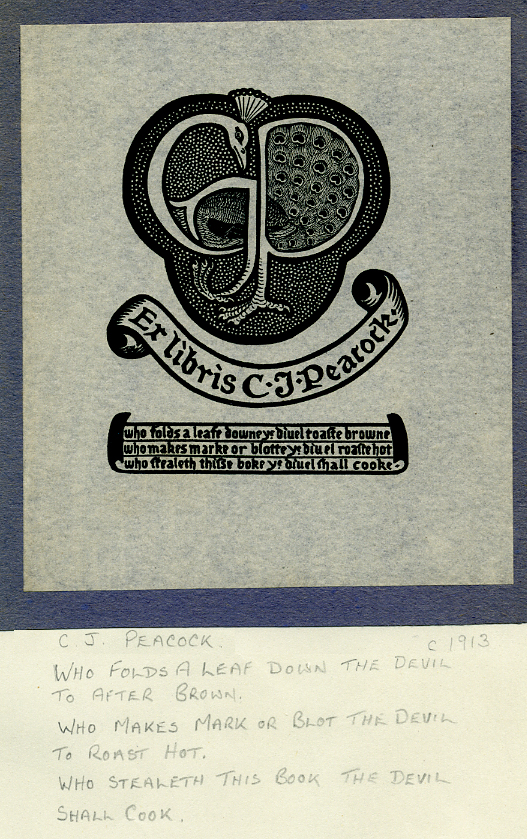 Ex libris C·J·Peacock·
who folds a leafe downe yᵉ diuel toaſte browne
who makes marke or blotte yᵉ diuel roaſte hot
who ſtealeth thiſse boke yᵉ diuel ſhall cooke·
C. J. PEACOCK. C 1913
WHO FOLDS A LEAF DOWN THE DEVIL
TO AFTER BROWN.
WHO MAKES MARK OR BLOT THE DEVIL
TO ROAST HOT.
WHO STEALETH THIS BOOK THE DEVIL
SHALL COOK.